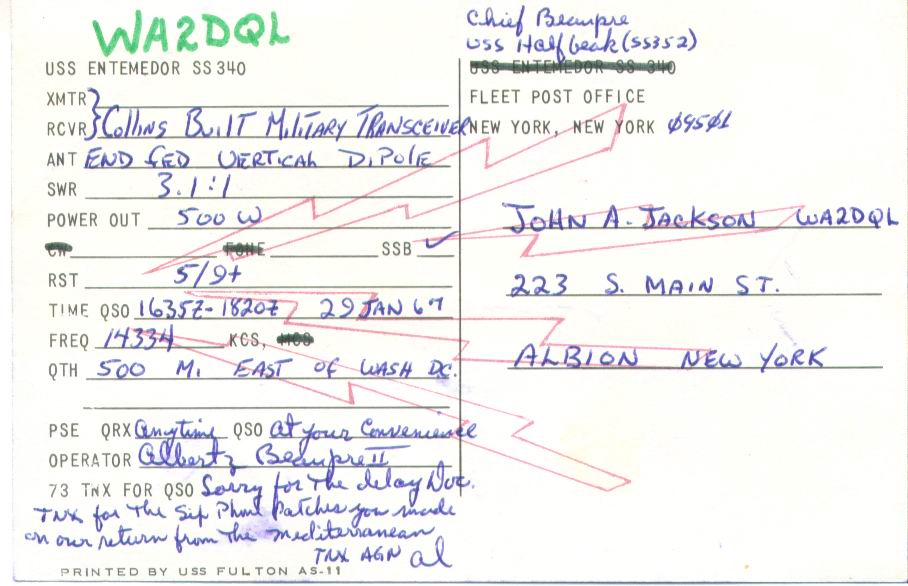 WA2DQL
USS ENTEMEDOR SS 340
XMTR
RCVR } Collins Built Military Transceiver
ANT END fED VERTICAL DiPOLE
SWR 3.1:1
POWER OUT 500 W
CW FONE SSB ✓
RST 5/9+
TIME QSO 1635Z-1820Z 29 JAN 67
FREQ 14334 KCS, MCS
QTH 500 Mi EAST of WASH DC.
PSE QRX anytime QSO at your Convenience
OPERATOR Beaupre II
73 TNX FOR QSO Sorry for The delay Doc.
TNX for The Patches you made
on our return from The mediterranean
TNX AGN al
PRINTED BY USS FULTON AS-11
Chief Beaupre
USS Halfbeak (SS352)
USS ENTEMEDOR SS 340
FLEET POST OFFICE
NEW YORK, NEW YORK 09501
JOHN A. JACKSON WA2DQL
223 S. MAIN ST.
ALBION NEW YORK